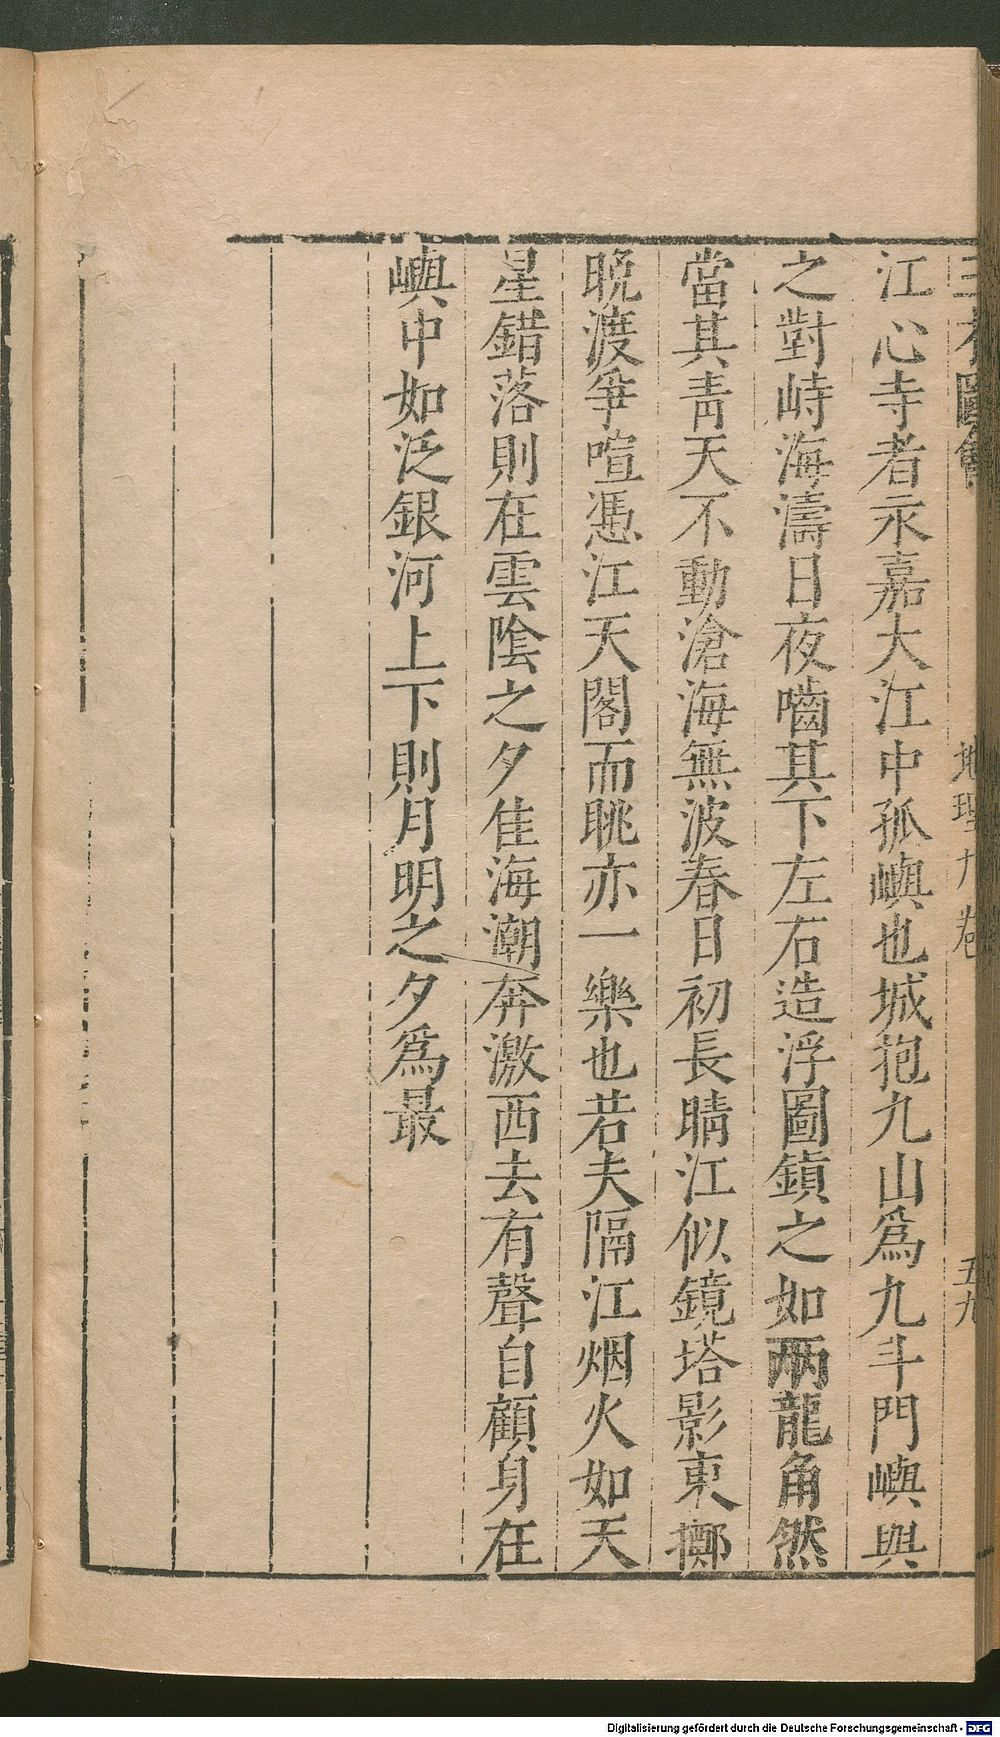 三才圖會 地理九卷 五九
江心寺者永嘉大江中孤嶼也城抱九山爲九斗門嶼與
之對峙海濤日夜嚙其下左右造浮圖鎮之如兩龍角然
當其靑天不動滄海無波春日初長晴江似鏡塔影東擲
晩渡爭喧憑江天閣而眺亦一樂也若夫隔江烟火如天
星錯落則在雲陰之夕佳海潮奔激西去有聲自顧身在
嶼中如泛銀河上下則月明之夕爲最
Digitalisierung gefördert durch die Deutsche Forschungsgemeinschaft - DFG